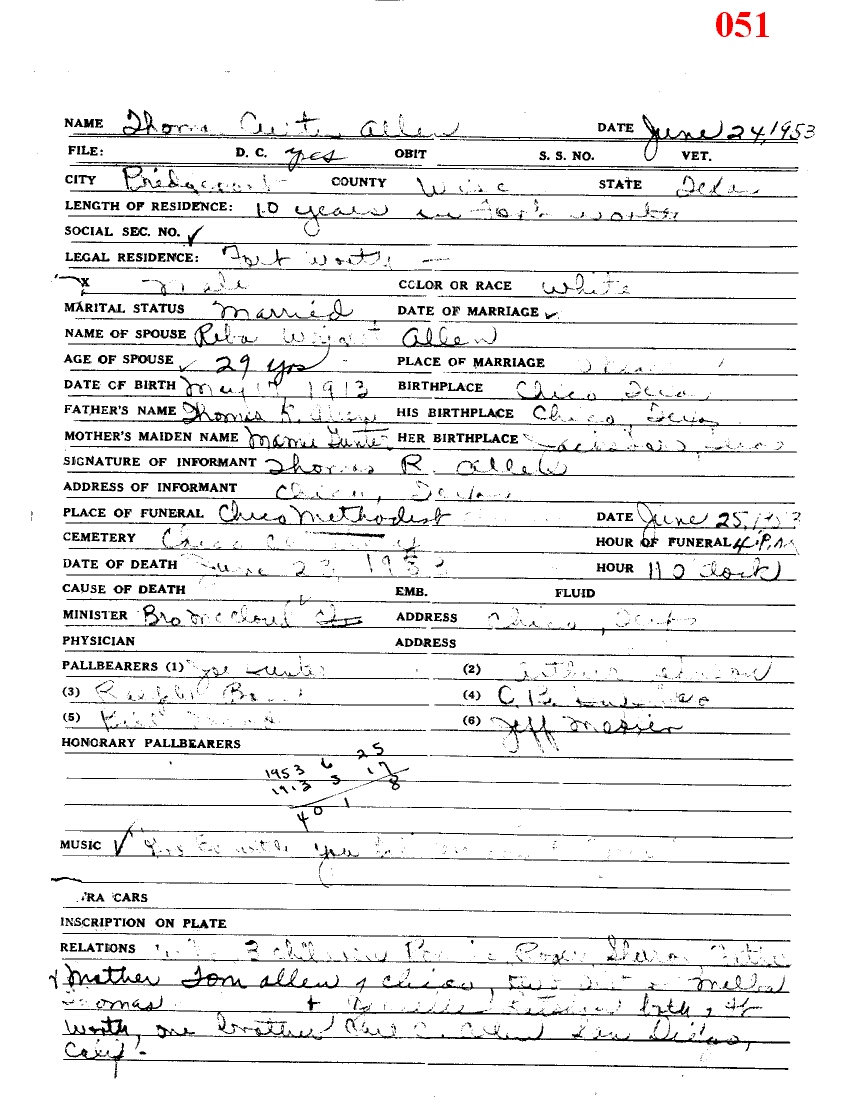 051
NAME Thomas Curtis Allen DATE June 24, 1953
FILE: D. C. yes OBIT S. S. NO. VET.
CITY Bridgeport COUNTY Wise STATE Texas
LENGTH OF RESIDENCE: 10 years in Fort Worth
SOCIAL SEC. NO. ✓
LEGAL RESIDENCE: Fort Worth —
X Male COLOR OR RACE White
MARITAL STATUS Married DATE OF MARRIAGE ✓
NAME OF SPOUSE Reba Wright Allen
AGE OF SPOUSE ✓ 29 yrs PLACE OF MARRIAGE
DATE OF BIRTH May 17 1913 BIRTHPLACE Chico Texas
FATHER'S NAME Thomas R. Allen HIS BIRTHPLACE Chico, Texas
MOTHER'S MAIDEN NAME Mamie Gunter HER BIRTHPLACE Jacksboro, Texas
SIGNATURE OF INFORMANT Thomas R. Allen
ADDRESS OF INFORMANT Chico, Texas
PLACE OF FUNERAL Chico Methodist DATE June 25, 1953
CEMETERY Chico HOUR OF FUNERAL 4 P.M
DATE OF DEATH June 23, 1953 HOUR 11 O'clock
CAUSE OF DEATH EMB. FLUID
MINISTER Bro McCloud ADDRESS Chico, Texas
PHYSICIAN ADDRESS
PALLBEARERS (1) Joe Gunter (2) Arthur
(3) Ralph (4) C. B.
(5) (6) Jeff
HONORARY PALLBEARERS
1953 6 25
1913 5 17
40 1 8
MUSIC ✓ be with you
TRA CARS
INSCRIPTION ON PLATE
RELATIONS 3 children Roger Sharon
Mother Tom Allen of Chico, Melba
Thomas + both, Ft
Worth, one brother C. Allen San Diego,
Calif.